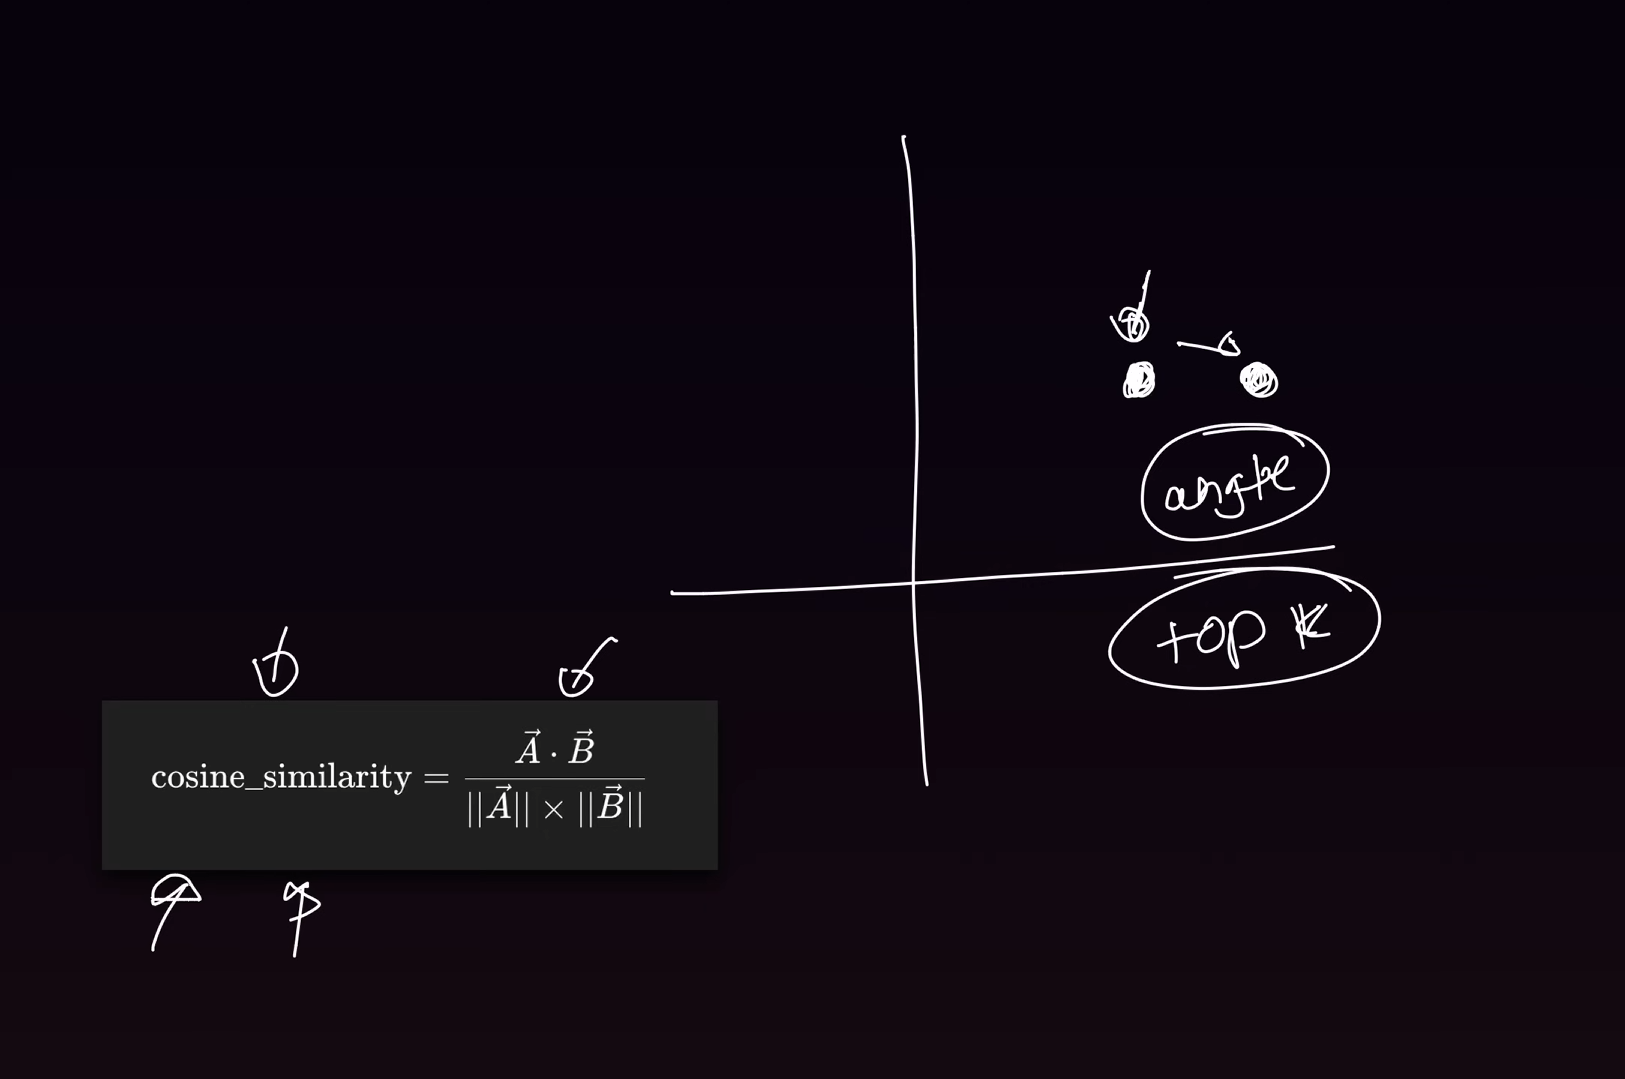 angle
top K
cosine_similarity = \frac{\vec{A} \cdot \vec{B}}{||\vec{A}|| \times ||\vec{B}||}